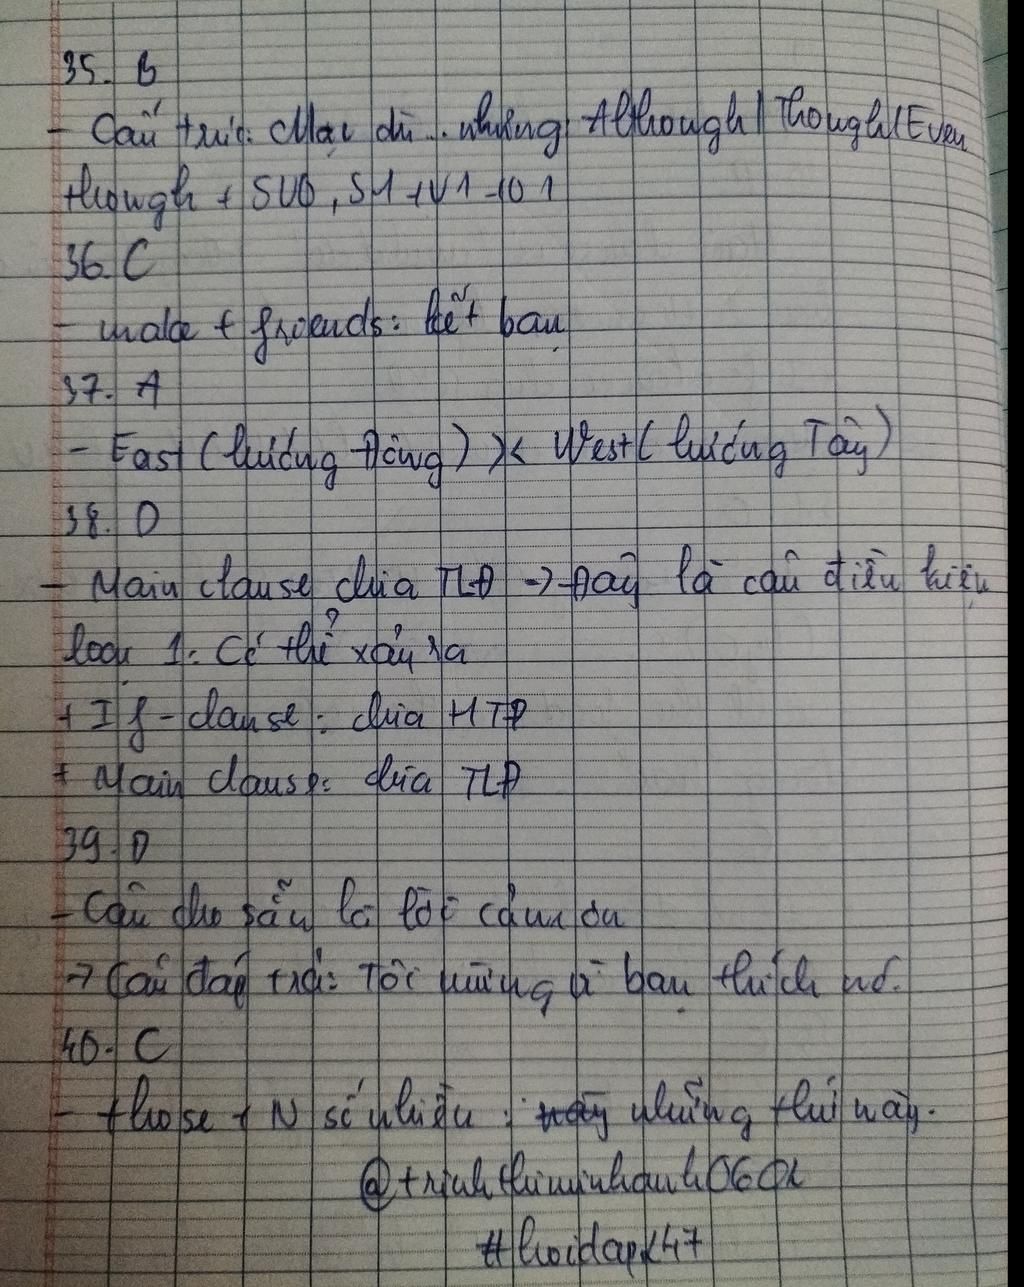 35. B
- Cấu trúc: Mặc dù... nhưng Although/Though/Even
though + SVO, S1+V1+O1
36. C
- make + friends: kết bạn
37. A
- East (hướng Đông) >< West (hướng Tây)
38. D
- Main clause chia TLĐ → Đây là câu điều kiện
loại 1: Có thể xảy ra
+ If-clause: chia HTĐ
+ Main clause: chia TLĐ
39. D
- Câu cho sẵn là lời cảm ơn
→ Câu đáp trả: Tôi mừng vì bạn thích nó.
40. C
- those + N số nhiều: những thứ này.
@trinhthiminhhanh0602
#hoidapk47